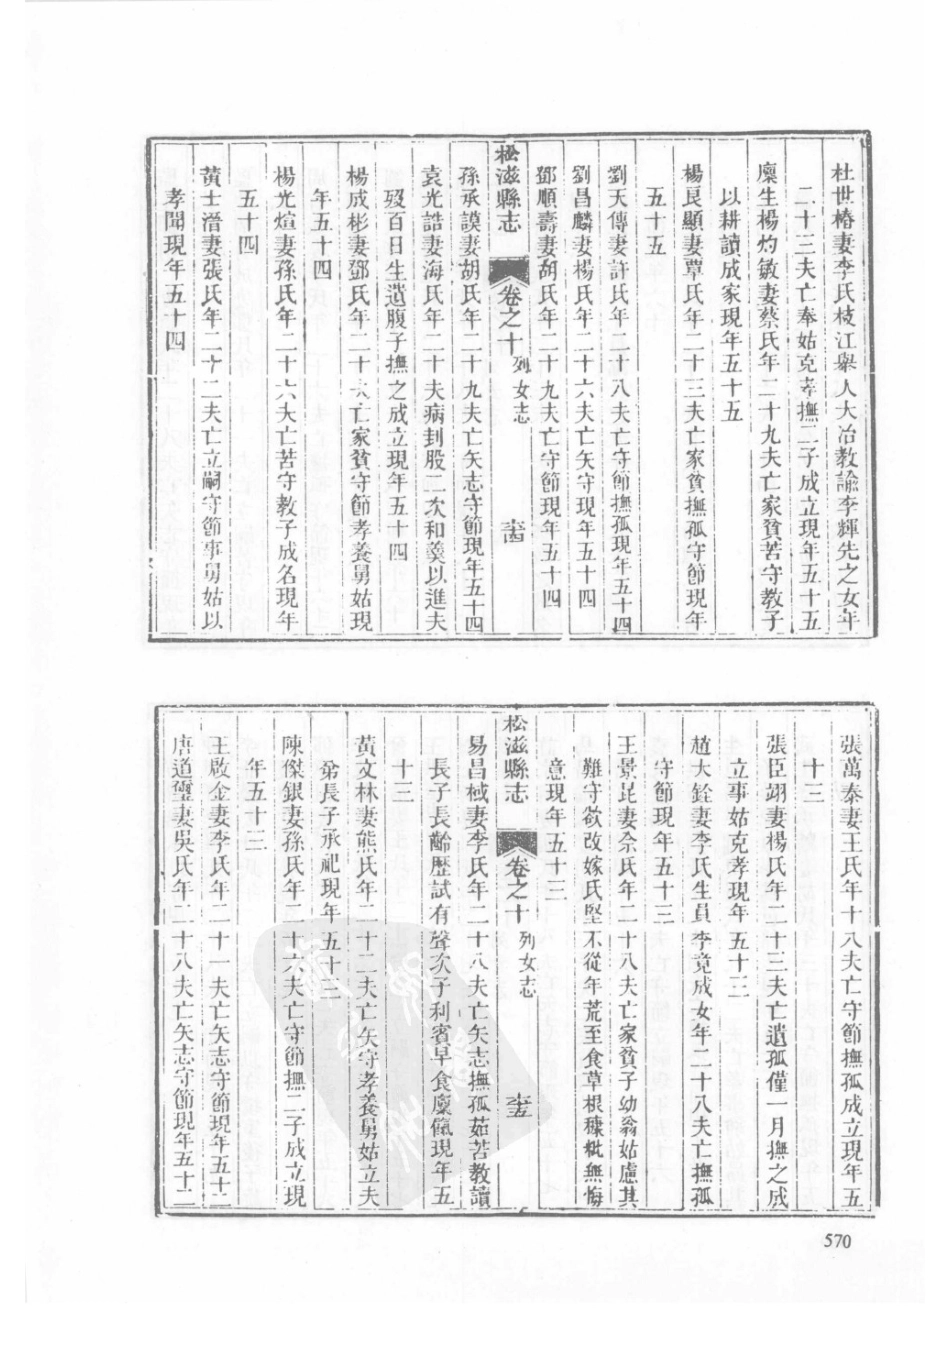 杜世椿妻李氏枝江舉人大冶教諭李輝先之女年
二十三夫亡奉姑克孝撫二子成立現年五十五
廩生楊灼敏妻蔡氏年二十九夫亡家貧苦守教子
以耕讀成家現年五十五
楊艮顯妻覃氏年二十三夫亡家貧撫孤守節現年
五十五
劉天傳妻許氏年二十八夫亡守節撫孤現年五十四
劉昌麟妻楊氏年二十六夫亡矢守現年五十四
鄧順壽妻胡氏年二十九夫亡守節現年五十四
松滋縣志 卷之十 列女志
孫承謨妻胡氏年二十九夫亡矢志守節現年五十四
袁光誥妻海氏年二十夫病刲股二次和羹以進夫
歿百日生遺腹子撫之成立現年五十四
楊成彬妻鄧氏年二十 亡家貧守節孝養舅姑現
年五十四
楊光煊妻孫氏年二十六夫亡苦守教子成名現年
五十四
黃士溍妻張氏年二十二夫亡立嗣守節事舅姑以
孝聞現年五十四
張萬泰妻王氏年十八夫亡守節撫孤成立現年五
十三
張臣翊妻楊氏年二十三夫亡遺孤僅一月撫之成
立事姑克孝現年五十三
趙大銓妻李氏生員李竟成女年二十八夫亡撫孤
守節現年五十三
王景昆妻佘氏年二十八夫亡家貧子幼翁姑慮其
難守欲改嫁氏堅不從年荒至食草根糠粃無悔
意現年五十三
松滋縣志 卷之十 列女志
易昌棫妻李氏年二十八夫亡矢志撫孤茹苦教讀
長子長齡歷試有聲次子利賓早食廩餼現年五
十三
黃文林妻熊氏年二十二夫亡矢守孝養舅姑立夫
弟長子承祀現年五十三
陳傑銀妻孫氏年二十六夫亡守節撫二子成立現
年五十三
王啟金妻李氏年二十一夫亡矢志守節現年五十二
唐道璽妻吳氏年二十八夫亡矢志守節現年五十二
570